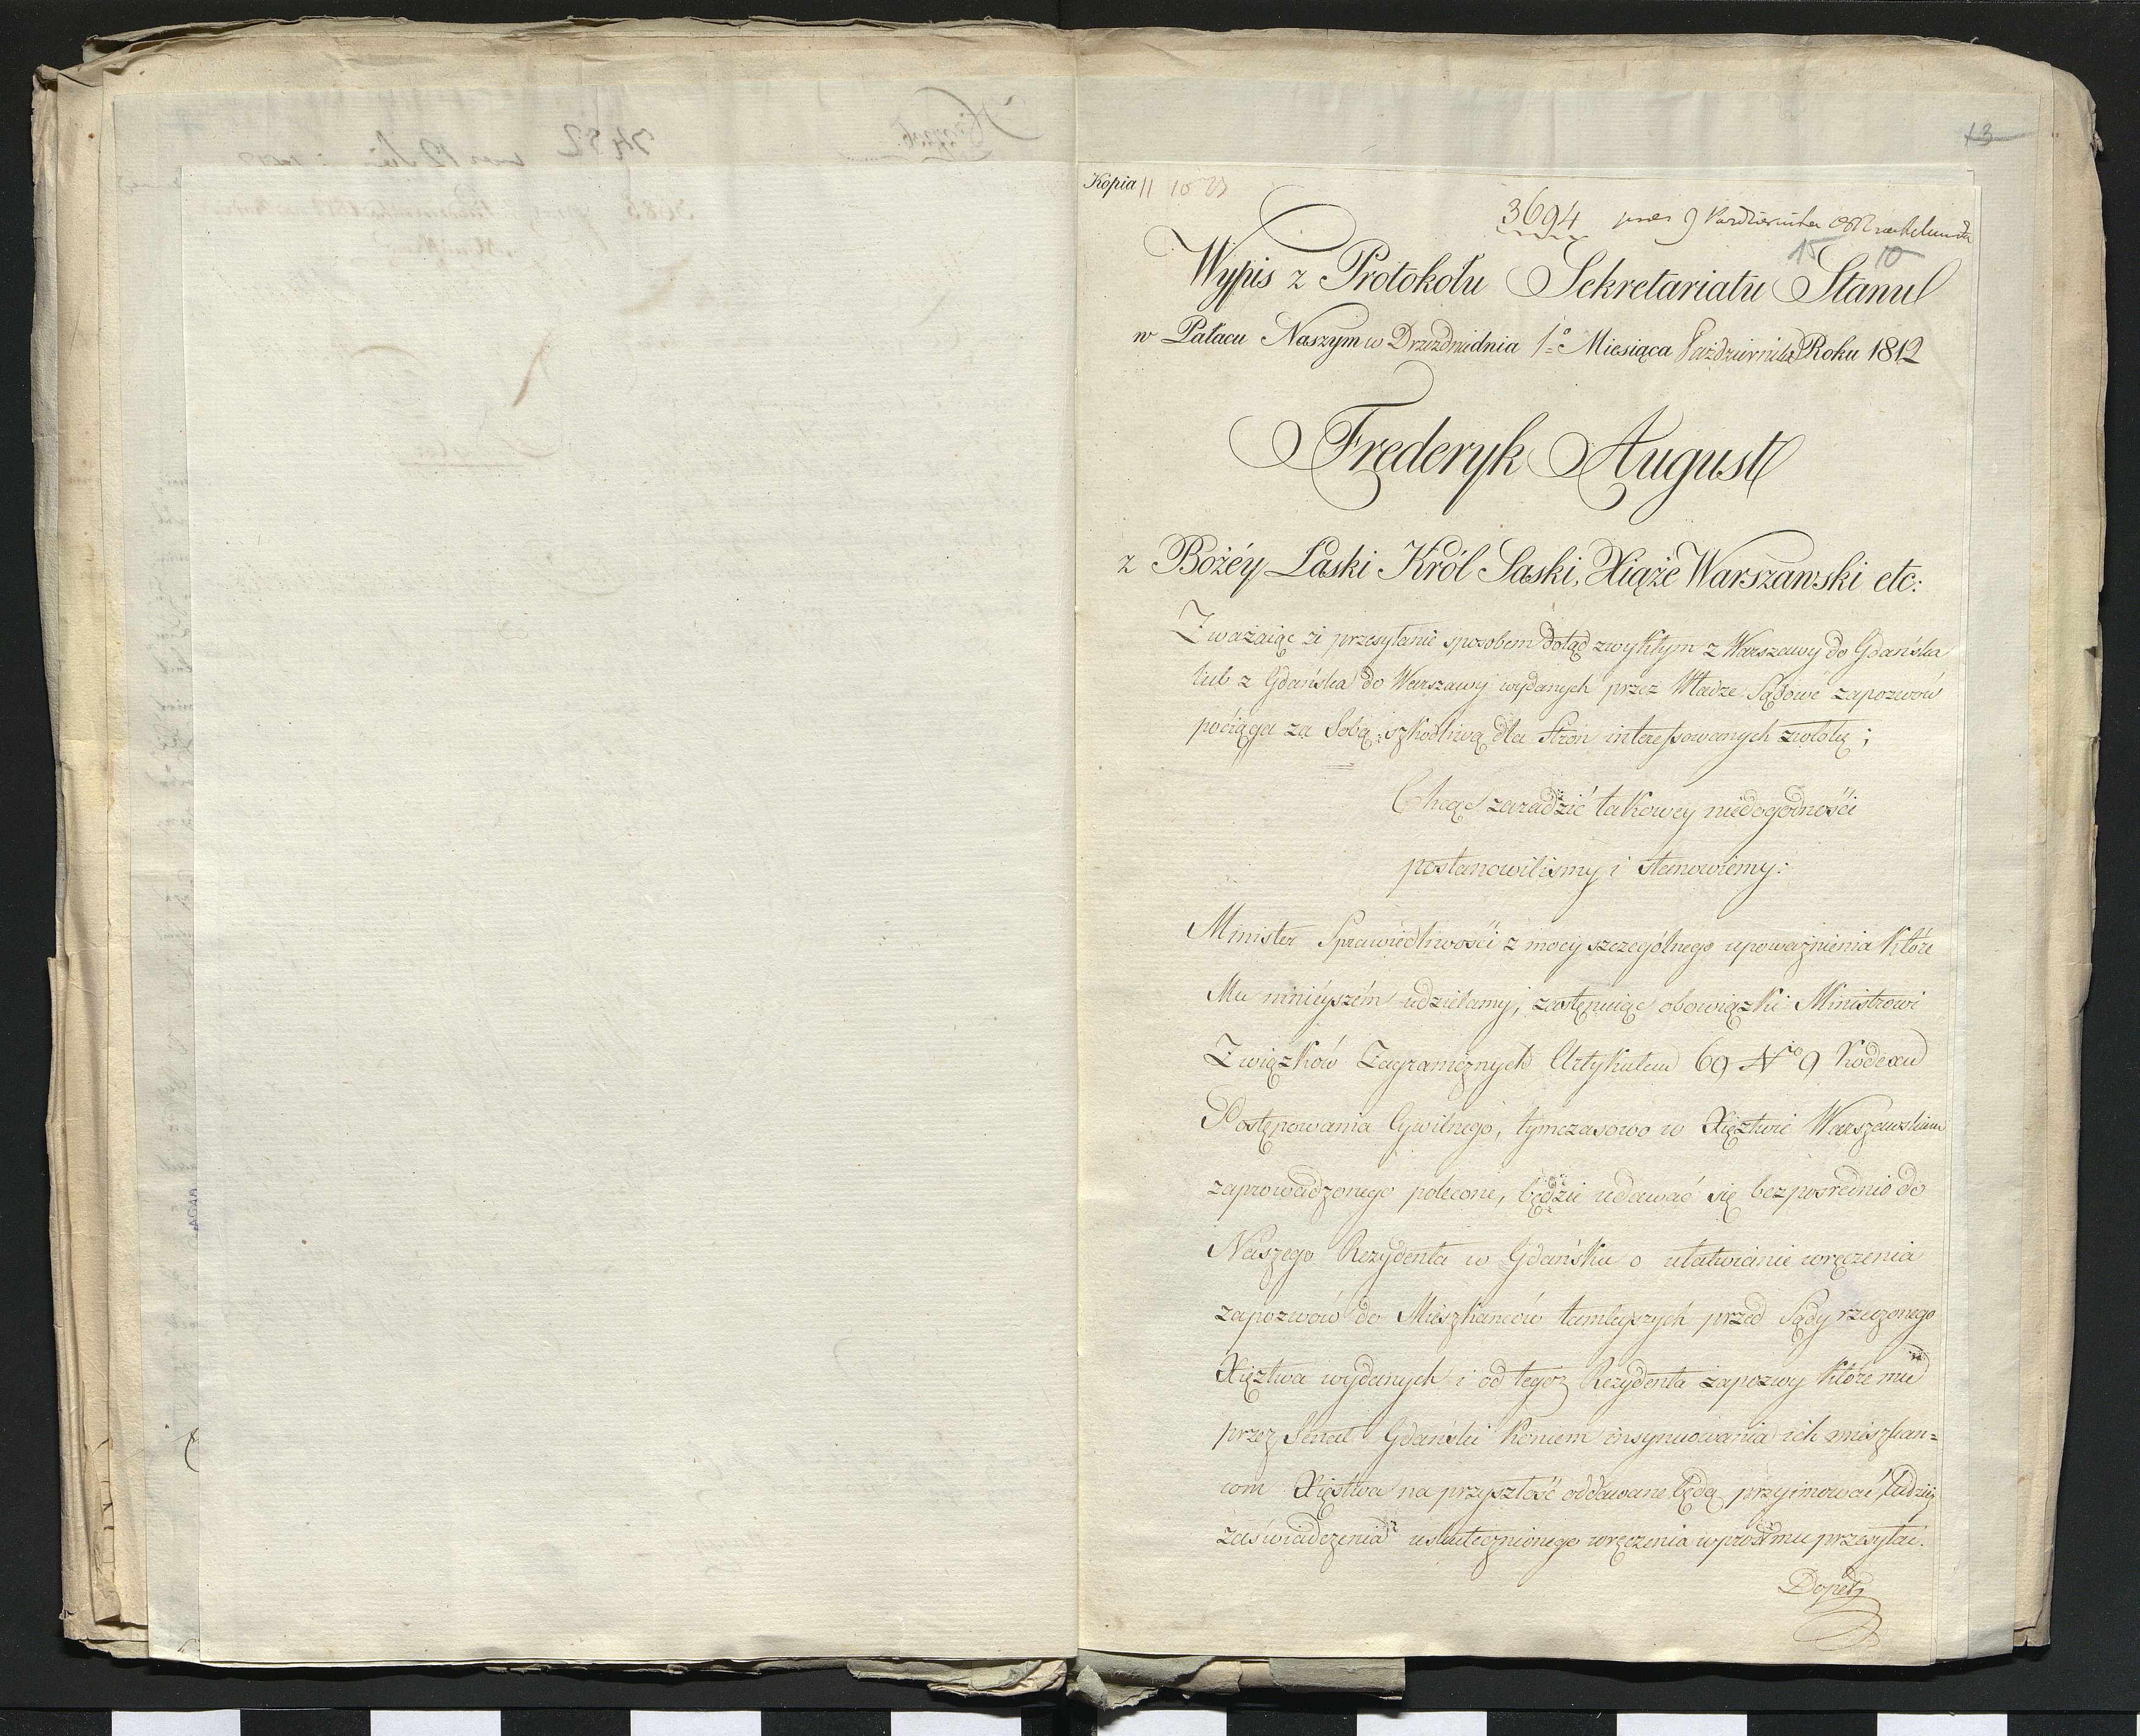 13
Kopia 11
3694 9 Października
15 10
Wypis z Protokołu Sekretariatu Stanu
w Pałacu Naszym w Dreźdnie dnia 1º Miesiąca Października Roku 1812
Frederyk August
z Bożéy Łaski Król Saski, Xiąże Warszawski etc:
Zważaiąc że przesyłanie sposobem dotąd zwykłym z Warszawy do Gdańska
lub z Gdańska do Warszawy wydanych przez Władze Sądowe zapozwów
pociąga za sobą szkodliwą dla Stron interessowanych zwłokę;
Chcąc zaradzić takowey niedogodności
postanowiliśmy i stanowiemy:
Minister Sprawiedliwości z mocy szczególnego upoważnienia które
Mu ninieyszém udzielamy, zastępuiąc obowiązki Ministrowi
Związków Zagranicznych Artykułem 69 Nro 9 Kodexu
Postępowania Cywilnego, tymczasowo w Xięztwie Warszawskiem
zaprowadzonego polecone, będzie udawać się bezpośrednio do
Naszego Rezydenta w Gdańsku o ułatwienie wręczenia
zapozwów do Mieszkańców tamteyszych przed Sądy rzeczonego
Xięztwa wydanych i od tegoż Rezydenta zapozwy które mu
przez Senat Gdański koncem insynuowania ich mieszkań=
com Xięstwa na przyszłość oddawane będą przyimować, tudzież
zaświadczenia uskutecznionego wręczenia wprost mu przesyłać.
Dopeł